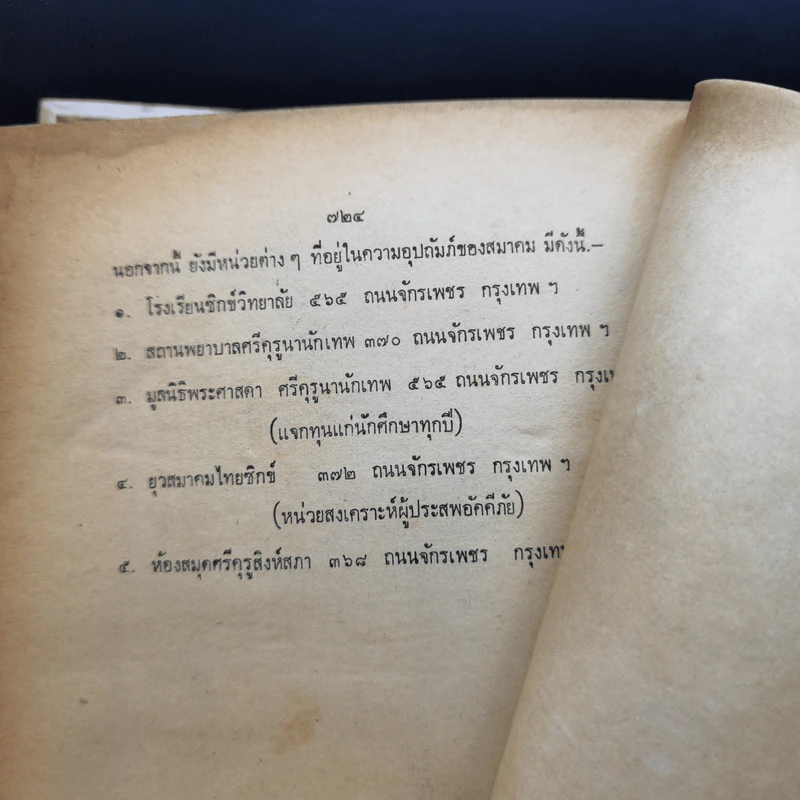 ๗๒๔
นอกจากนี้ ยังมีหน่วยต่าง ๆ ที่อยู่ในความอุปถัมภ์ของสมาคม มีดังนี้.—
๑. โรงเรียนซิกข์วิทยาลัย ๕๖๕ ถนนจักรเพชร กรุงเทพ ฯ
๒. สถานพยาบาลศรีคุรูนานักเทพ ๓๗๐ ถนนจักรเพชร กรุงเทพ ฯ
๓. มูลนิธิพระศาสดา ศรีคุรูนานักเทพ ๕๖๕ ถนนจักรเพชร
(แจกทุนแก่นักศึกษาทุกปี)
๔. ยุวสมาคมไทยซิกข์ ๓๗๒ ถนนจักรเพชร กรุงเทพ ฯ
(หน่วยสงเคราะห์ผู้ประสพอัคคีภัย)
๕. ห้องสมุดศรีคุรูสิงห์สภา ๓๖๘ ถนนจักรเพชร